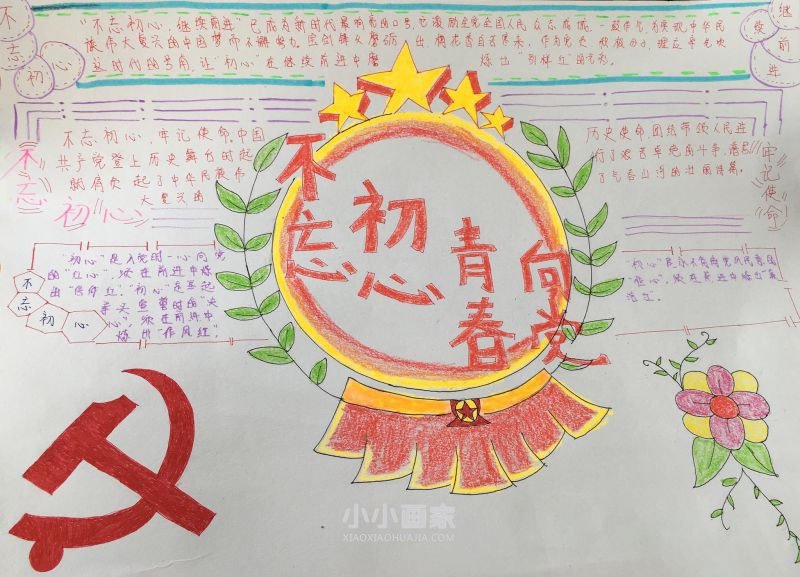 不忘初心
继续前进
"不忘初心，继续前进"已成为新时代最响亮的口号，它激励全党全国人民众志成城，一鼓作气为实现中华民
族伟大复兴的中国梦而不懈努力。宝剑锋从磨砺出，梅花香自苦寒来，作为党员
这时代的号角，让"初心"在继续前进中
不忘初心，牢记使命。中国
共产党登上历史舞台时起
就肩负起了中华民族伟
大复兴的
历史使命，团结带领人民进
行了艰苦卓绝的斗争，谱写
了气吞山河的壮丽
不忘初心
牢记使命
不忘
初心
青春
向党
"初心"是入党时一心向党
的"红心"，须在前进中炼
出"信仰红"。"初心"是举起
拳头宣誓时的"决
心"，须在前进中
炼出"作风红"。
不忘初心
"初心"是
须在前进中炼出"
小小画家
XIAOXIAOHUAJIA.COM